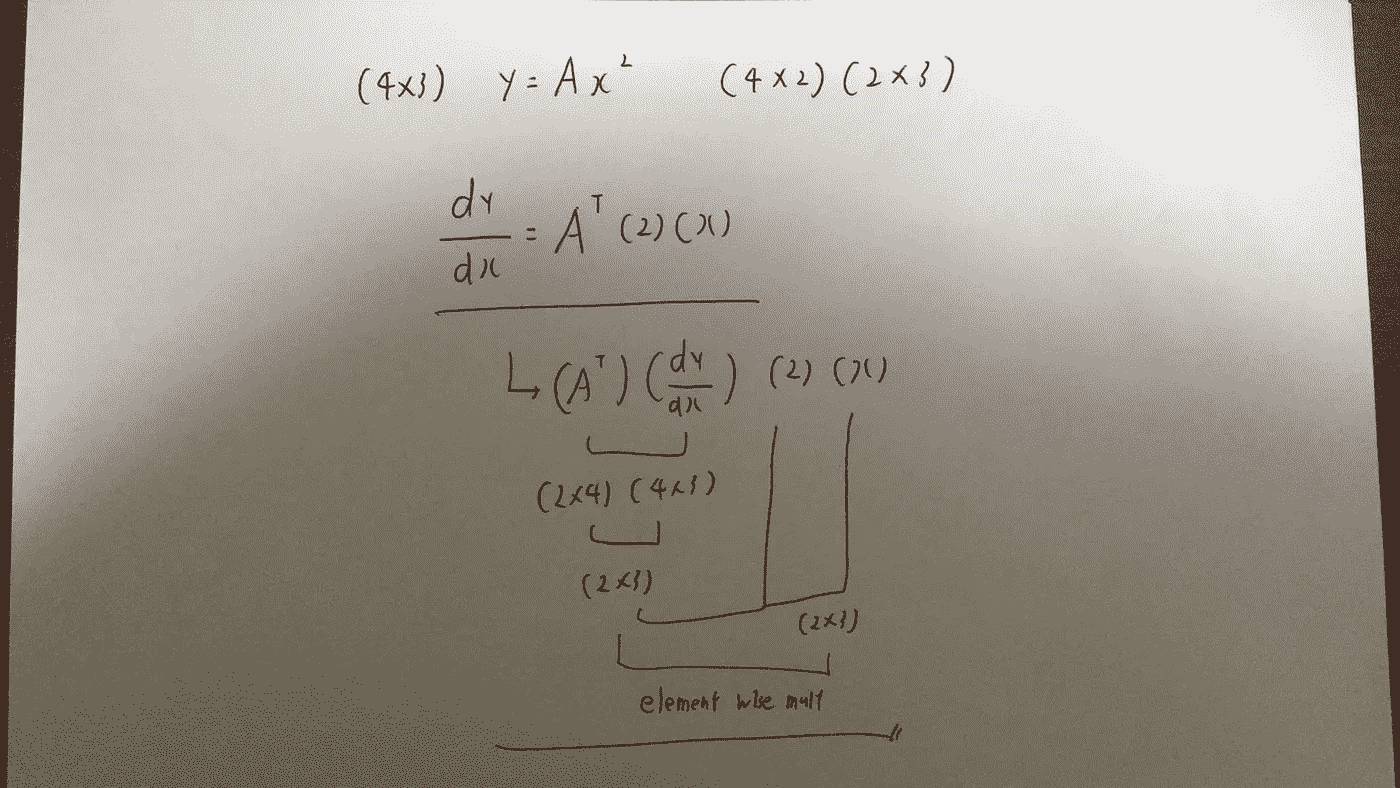 (4×3) y = Ax² (4×2)(2×3)
dy/dx = Aᵀ (2)(x)
↳ (Aᵀ)(dy/dx) (2) (x)
(2×4) (4×3)
(2×3)
(2×3)
element wise mult